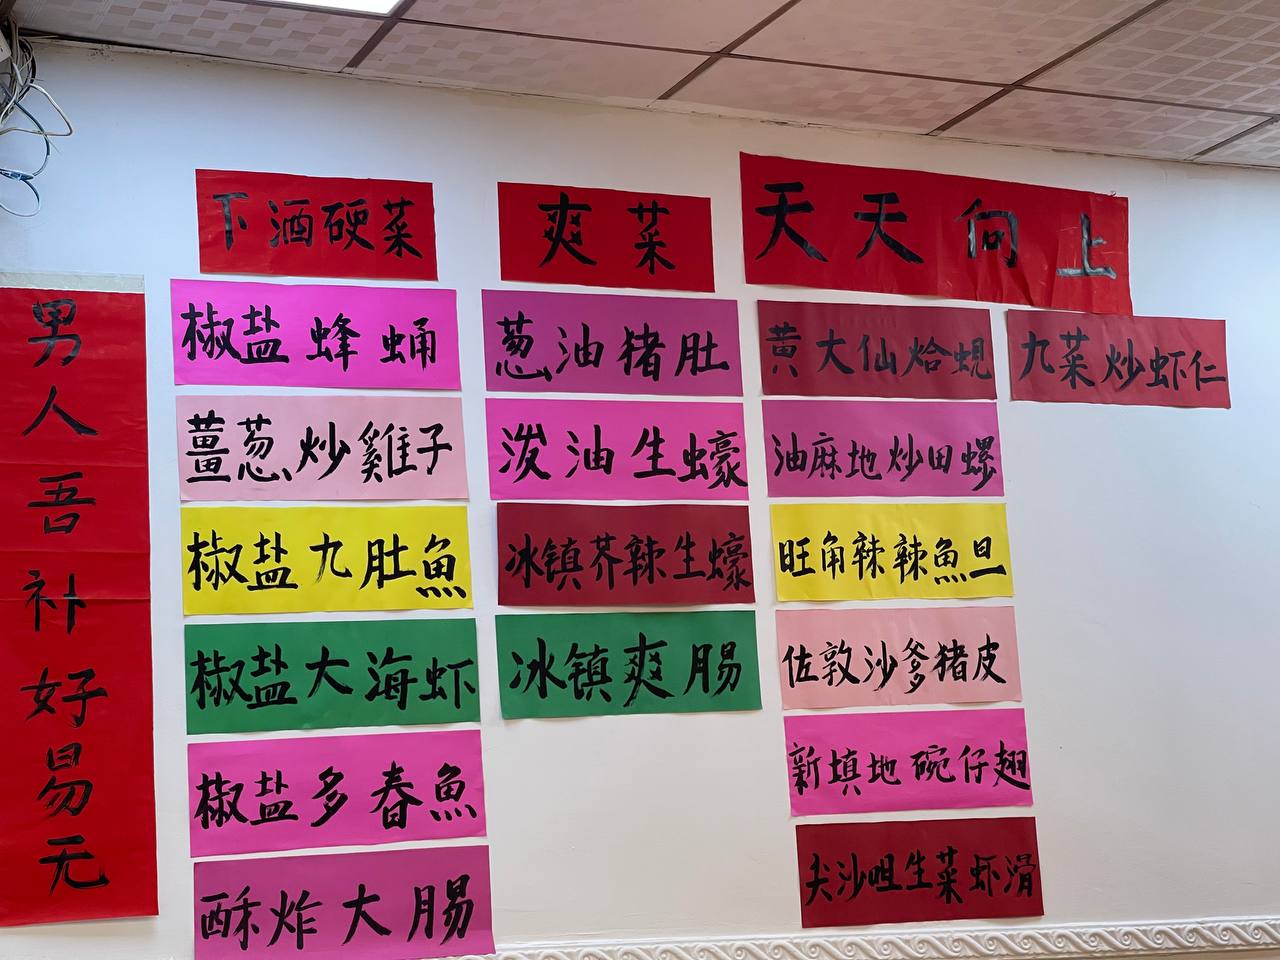 男人吾补好易无
下酒硬菜
椒盐蜂蛹
薑葱炒雞子
椒盐九肚魚
椒盐大海虾
椒盐多春魚
酥炸大肠
爽菜
葱油猪肚
泼油生蠔
冰镇芥辣生蠔
冰镇爽肠
天天向上
黄大仙炝蚬
油麻地炒田螺
旺角辣辣魚旦
佐敦沙爹猪皮
新填地碗仔翅
尖沙咀生菜虾滑
九菜炒虾仁